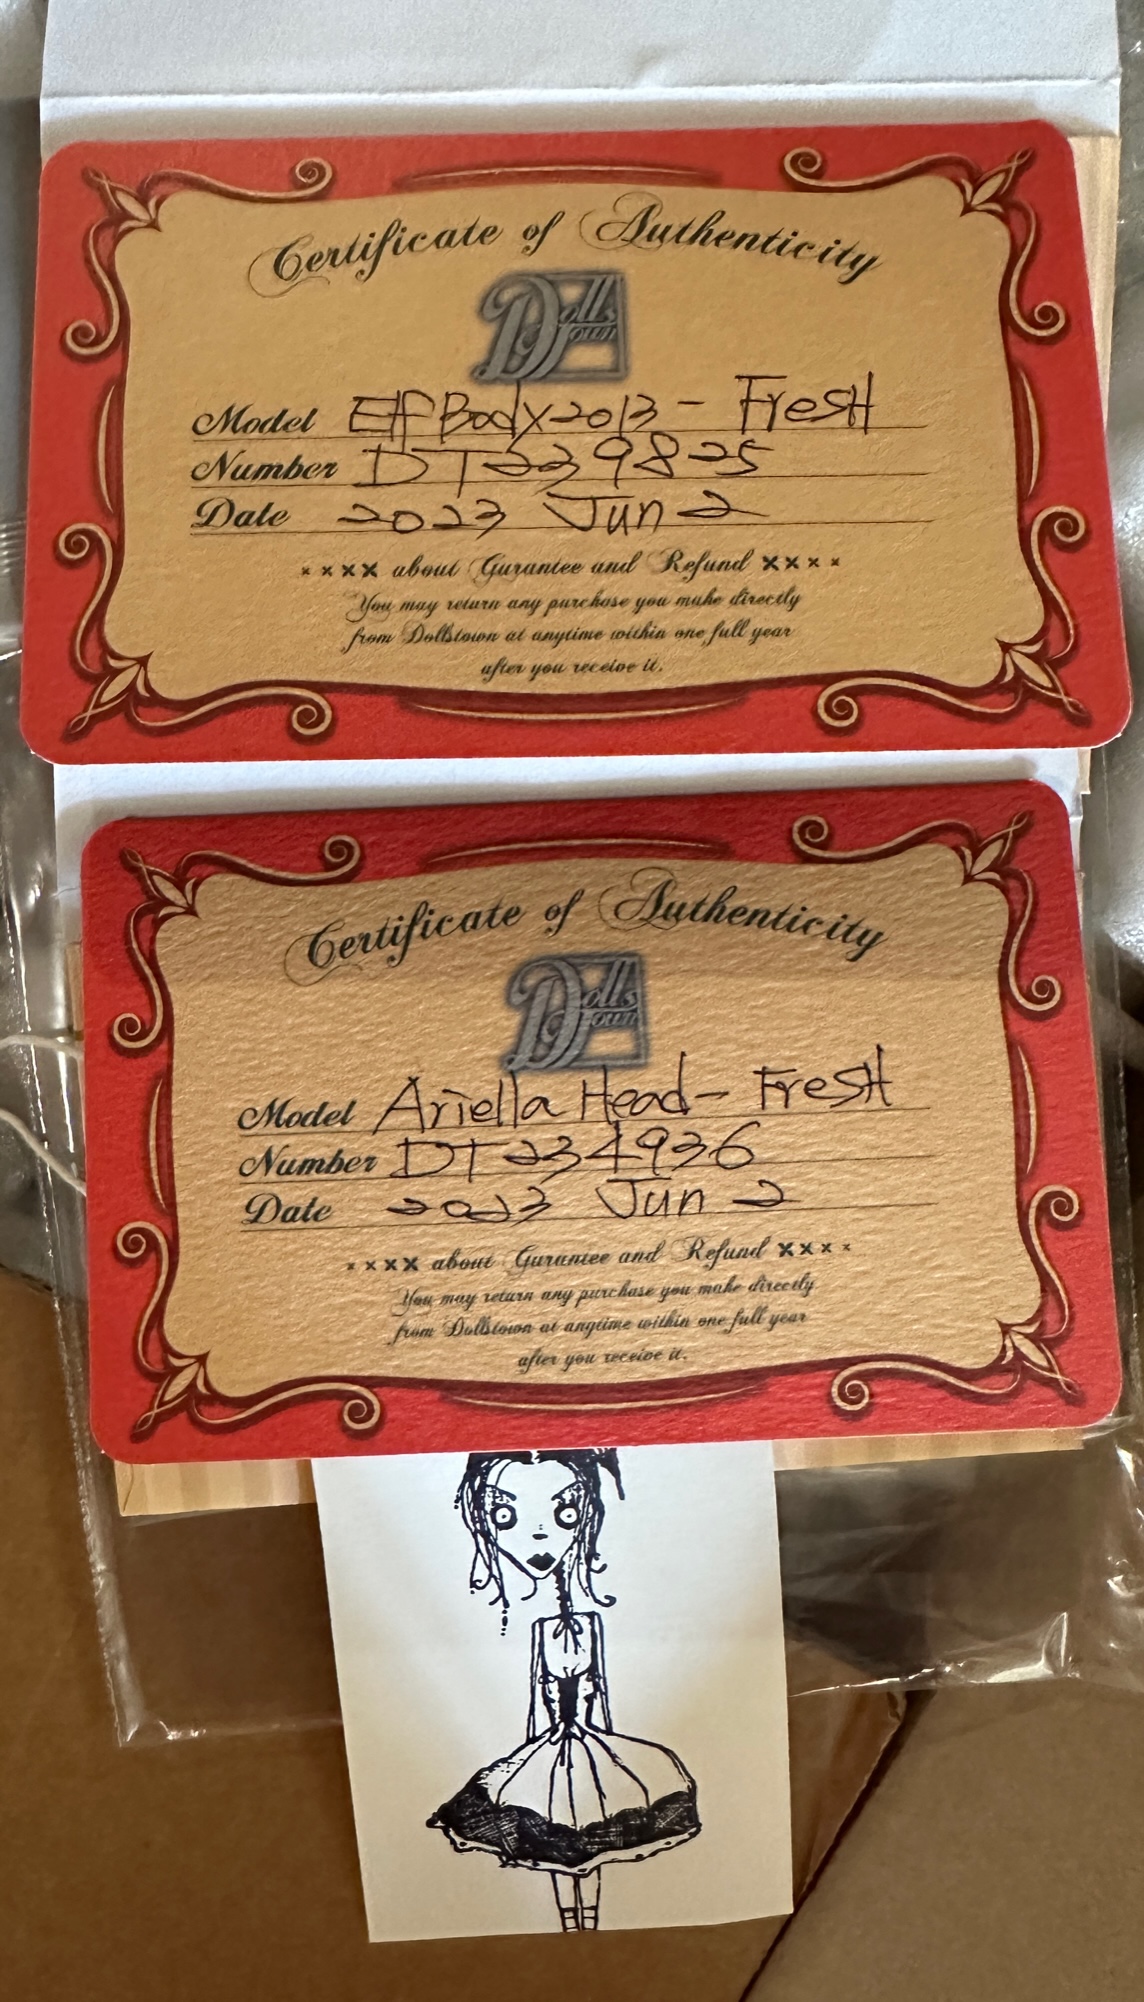 Certificate of Authenticity
Dolls Town
Model Elf Body 2013 - FresH
Number DT239825
Date 2023 Jun 2
×××× about Gurantee and Refund ××××
You may return any purchase you make directly
from Dollstown at anytime within one full year
after you receive it.
Certificate of Authenticity
Dolls Town
Model Ariella Head - FresH
Number DT234936
Date 2023 Jun 2
×××× about Gurantee and Refund ××××
You may return any purchase you make directly
from Dollstown at anytime within one full year
after you receive it.